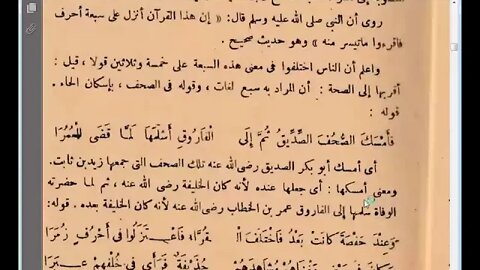 روى أن النبي صلى الله عليه وسلم قال: « إن هذا القرآن أنزل على سبعة أحرف
فاقرءوا ماتيسر منه » وهو حديث صحيح .
واعلم أن الناس اختلفوا فى معنى هذه السبعة على خمسة وثلاثين قولا ، قيل :
أقربها إلى الصحة : أن المراد به سبع لغات ، وقوله فى الصحف ، بإسكان الحاء .
قوله :
فَأَمْسَكَ الصُّحُفَ الصِّدِّيقُ ثُمَّ إِلَى الْفَارُوقِ أَسْلَمَهَا لَمَّا قَضَى الْعُمُرَا
أى أمسك أبو بكر الصديق رضى الله عنه تلك الصحف التى جمعها زيد بن ثابت .
ومعنى أمسكها : أى جعلها عنده لأنه كان الخليفة رضى الله عنه ، ثم لما حضرته
الوفاة سلمها إلى الفاروق عمر بن الخطاب رضى الله عنه لأنه كان الخليفة بعده . قوله:
وَعِنْدَ حَفْصَةَ كَانَتْ بَعْدُ فَاخْتَلَفَ الْقُرَّاءُ فَاعْتَزَلُوا فى أَحْرُفٍ زُمَرَا